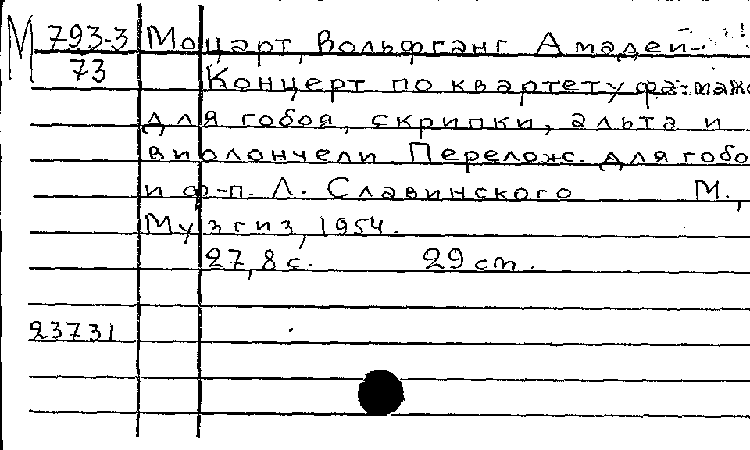 М 793-3 Моцарт, Вольфганг Амадей
73 Концерт по квартету фа-маж
для гобоя, скрипки, альта и
виолончели Перелож. для гобо
и ф-п. Л. Славинского М.,
Музгиз, 1954.
27, 8 с. 29 см.
23731